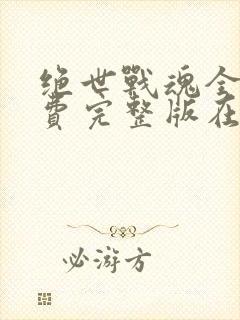 绝世戰魂全
費完整版在
必游方